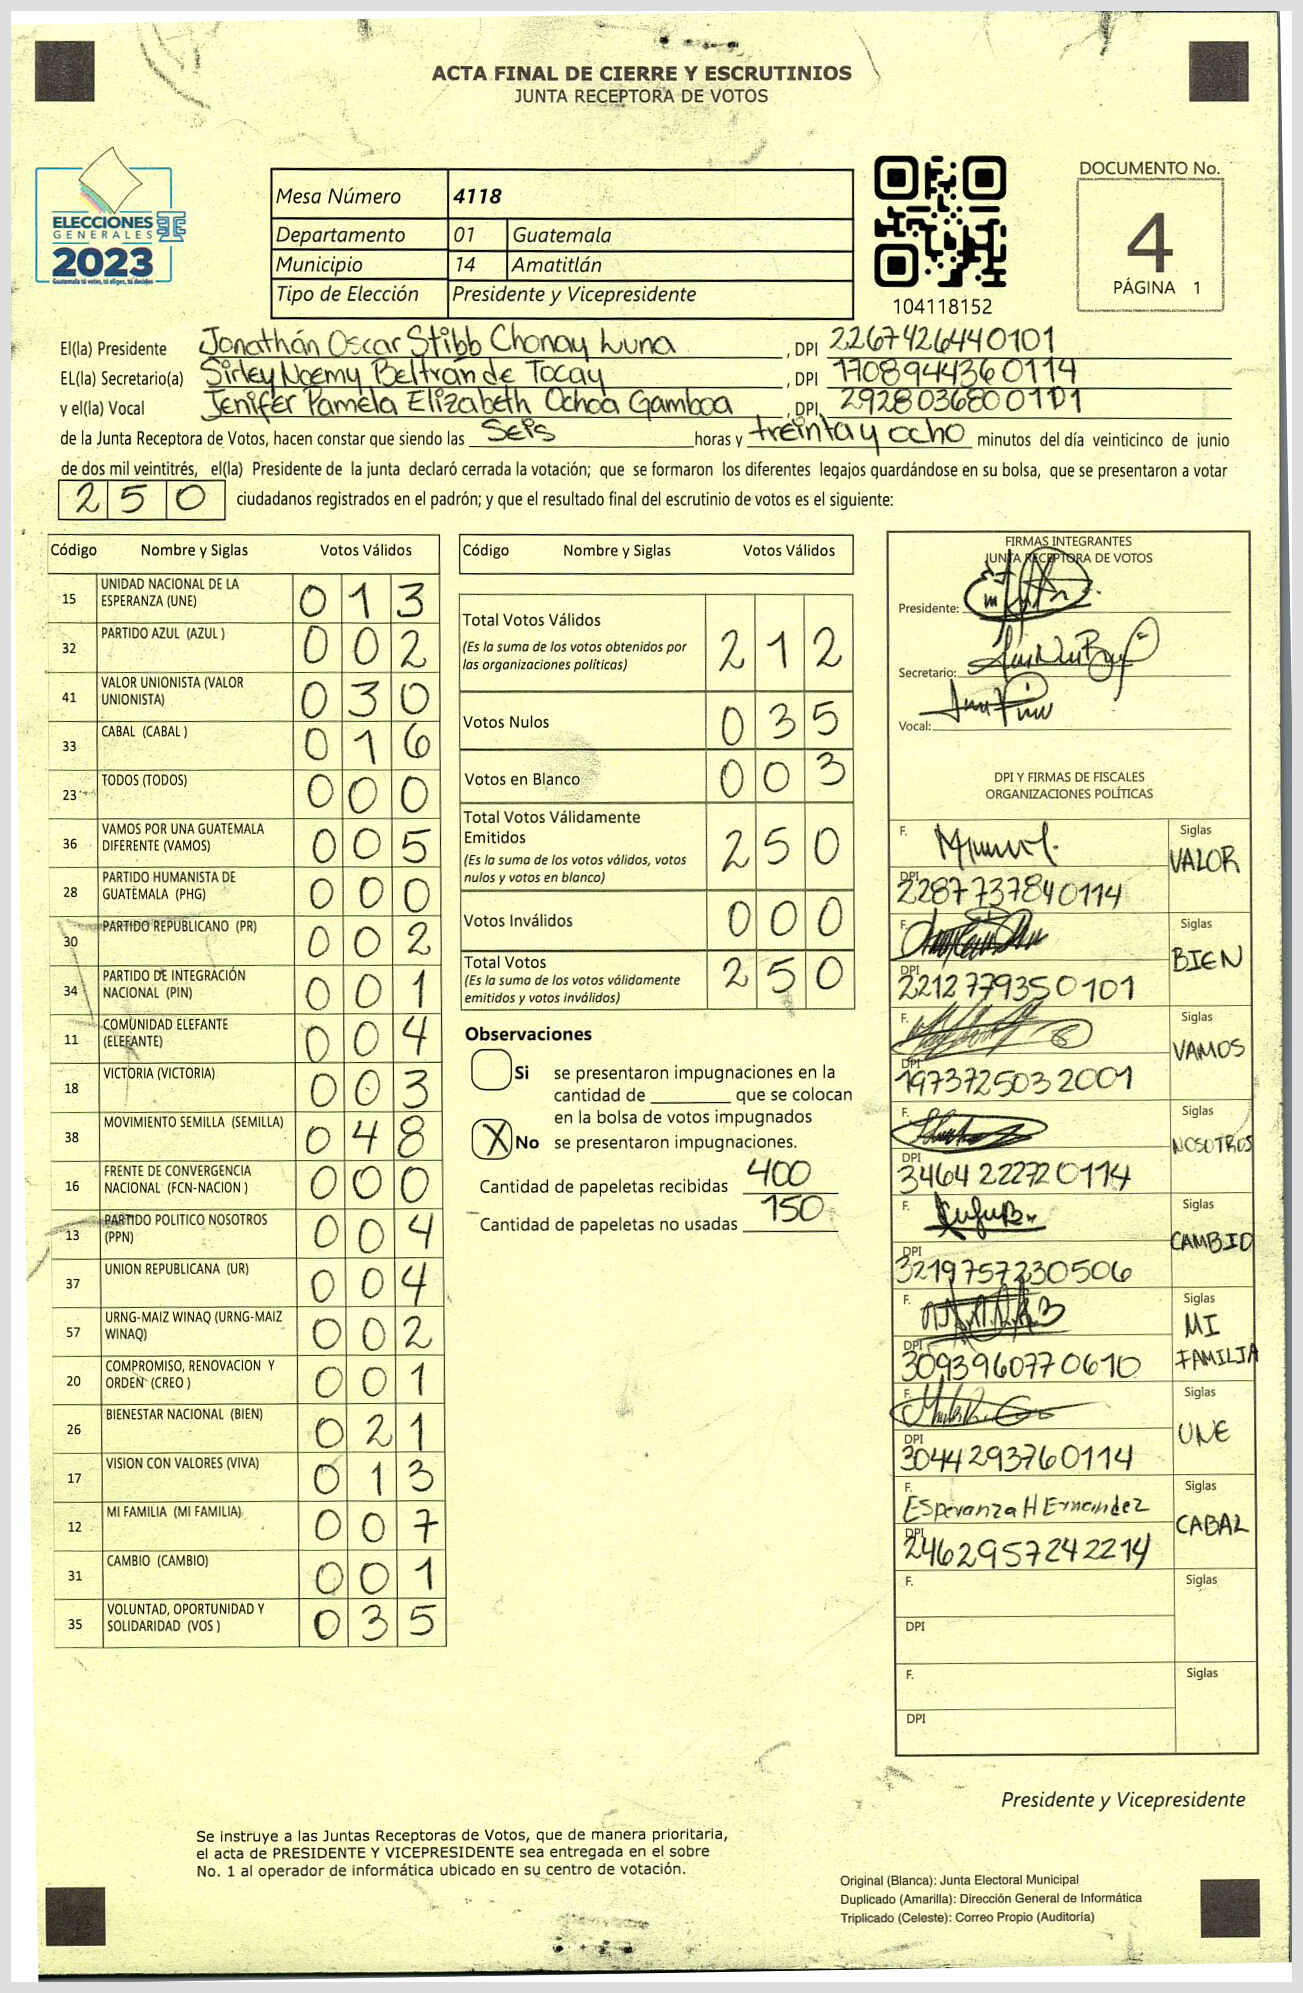 ACTA FINAL DE CIERRE Y ESCRUTINIOS
JUNTA RECEPTORA DE VOTOS
ELECCIONES
GENERALES
2023
Guatemala tú votas, tú eliges, tú decides
Mesa Número 4118
Departamento 01 Guatemala
Municipio 14 Amatitlán
Tipo de Elección Presidente y Vicepresidente
104118152
DOCUMENTO No.
4
PÁGINA 1
El(la) Presidente Jonathán Oscar Stibb Chonay Luna , DPI 2267426440101
EL(la) Secretario(a) Sirley Noemy Beltrán de Tocay , DPI 1708944360114
y el(la) Vocal Jenifer Pamela Elizabeth Ochoa Gamboa , DPI 2928036800101
de la Junta Receptora de Votos, hacen constar que siendo las Seis horas y treinta y ocho minutos del día veinticinco de junio
de dos mil veintitrés, el(la) Presidente de la junta declaró cerrada la votación; que se formaron los diferentes legajos guardándose en su bolsa, que se presentaron a votar
250 ciudadanos registrados en el padrón; y que el resultado final del escrutinio de votos es el siguiente:
Código Nombre y Siglas Votos Válidos
15 UNIDAD NACIONAL DE LA ESPERANZA (UNE) 013
32 PARTIDO AZUL (AZUL ) 002
41 VALOR UNIONISTA (VALOR UNIONISTA) 030
33 CABAL (CABAL ) 016
23 TODOS (TODOS) 000
36 VAMOS POR UNA GUATEMALA DIFERENTE (VAMOS) 005
28 PARTIDO HUMANISTA DE GUATEMALA (PHG) 000
30 PARTIDO REPUBLICANO (PR) 002
34 PARTIDO DE INTEGRACIÓN NACIONAL (PIN) 001
11 COMUNIDAD ELEFANTE (ELEFANTE) 004
18 VICTORIA (VICTORIA) 003
38 MOVIMIENTO SEMILLA (SEMILLA) 048
16 FRENTE DE CONVERGENCIA NACIONAL (FCN-NACION ) 000
13 PARTIDO POLITICO NOSOTROS (PPN) 004
37 UNION REPUBLICANA (UR) 004
57 URNG-MAIZ WINAQ (URNG-MAIZ WINAQ) 002
20 COMPROMISO, RENOVACION Y ORDEN (CREO ) 001
26 BIENESTAR NACIONAL (BIEN) 021
17 VISION CON VALORES (VIVA) 013
12 MI FAMILIA (MI FAMILIA) 007
31 CAMBIO (CAMBIO) 001
35 VOLUNTAD, OPORTUNIDAD Y SOLIDARIDAD (VOS ) 035
Código Nombre y Siglas Votos Válidos
Total Votos Válidos 212
(Es la suma de los votos obtenidos por
las organizaciones políticas)
Votos Nulos 035
Votos en Blanco 003
Total Votos Válidamente
Emitidos 250
(Es la suma de los votos válidos, votos
nulos y votos en blanco)
Votos Inválidos 000
Total Votos 250
(Es la suma de los votos válidamente
emitidos y votos inválidos)
Observaciones
Si se presentaron impugnaciones en la
cantidad de ________ que se colocan
en la bolsa de votos impugnados
X No se presentaron impugnaciones.
Cantidad de papeletas recibidas 400
Cantidad de papeletas no usadas 150
FIRMAS INTEGRANTES
JUNTA RECEPTORA DE VOTOS
Presidente:
Secretario:
Vocal:
DPI Y FIRMAS DE FISCALES
ORGANIZACIONES POLÍTICAS
F. Siglas
VALOR
DPI
2287737840114
F. Siglas
BIEN
DPI
2212779350101
F. Siglas
VAMOS
DPI
1973725032001
F. Siglas
NOSOTROS
DPI
3464222720114
F. Siglas
CAMBIO
DPI
3219757230506
F. Siglas
MI
FAMILIA
DPI
3093960770610
F. Siglas
UNE
DPI
3044293760114
F. Siglas
Esperanza HErnandez
CABAL
DPI
2462957242214
F. Siglas
DPI
F. Siglas
DPI
Presidente y Vicepresidente
Se instruye a las Juntas Receptoras de Votos, que de manera prioritaria,
el acta de PRESIDENTE Y VICEPRESIDENTE sea entregada en el sobre
No. 1 al operador de informática ubicado en su centro de votación.
Original (Blanca): Junta Electoral Municipal
Duplicado (Amarilla): Dirección General de Informática
Triplicado (Celeste): Correo Propio (Auditoría)